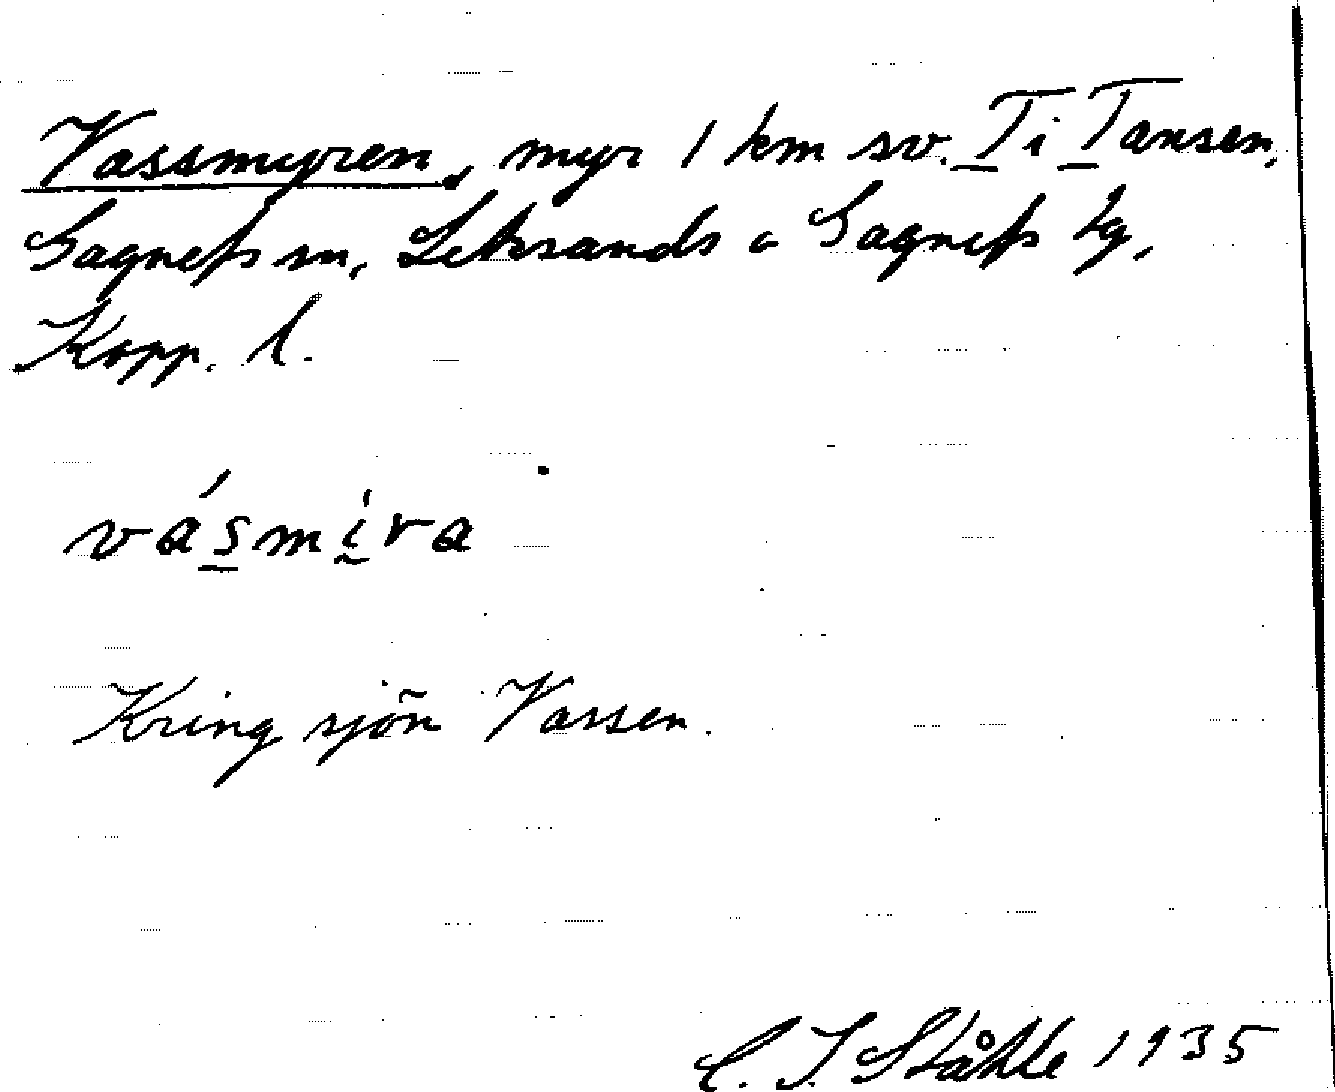 Vassmyren, myr 1 km sv. Ti i Tansen,
Gagnefs sn, Leksands o Gagnefs tg,
Kopp. l.
vásmíra
Kring sjön Vassen.
C. I. Ståhle 1935